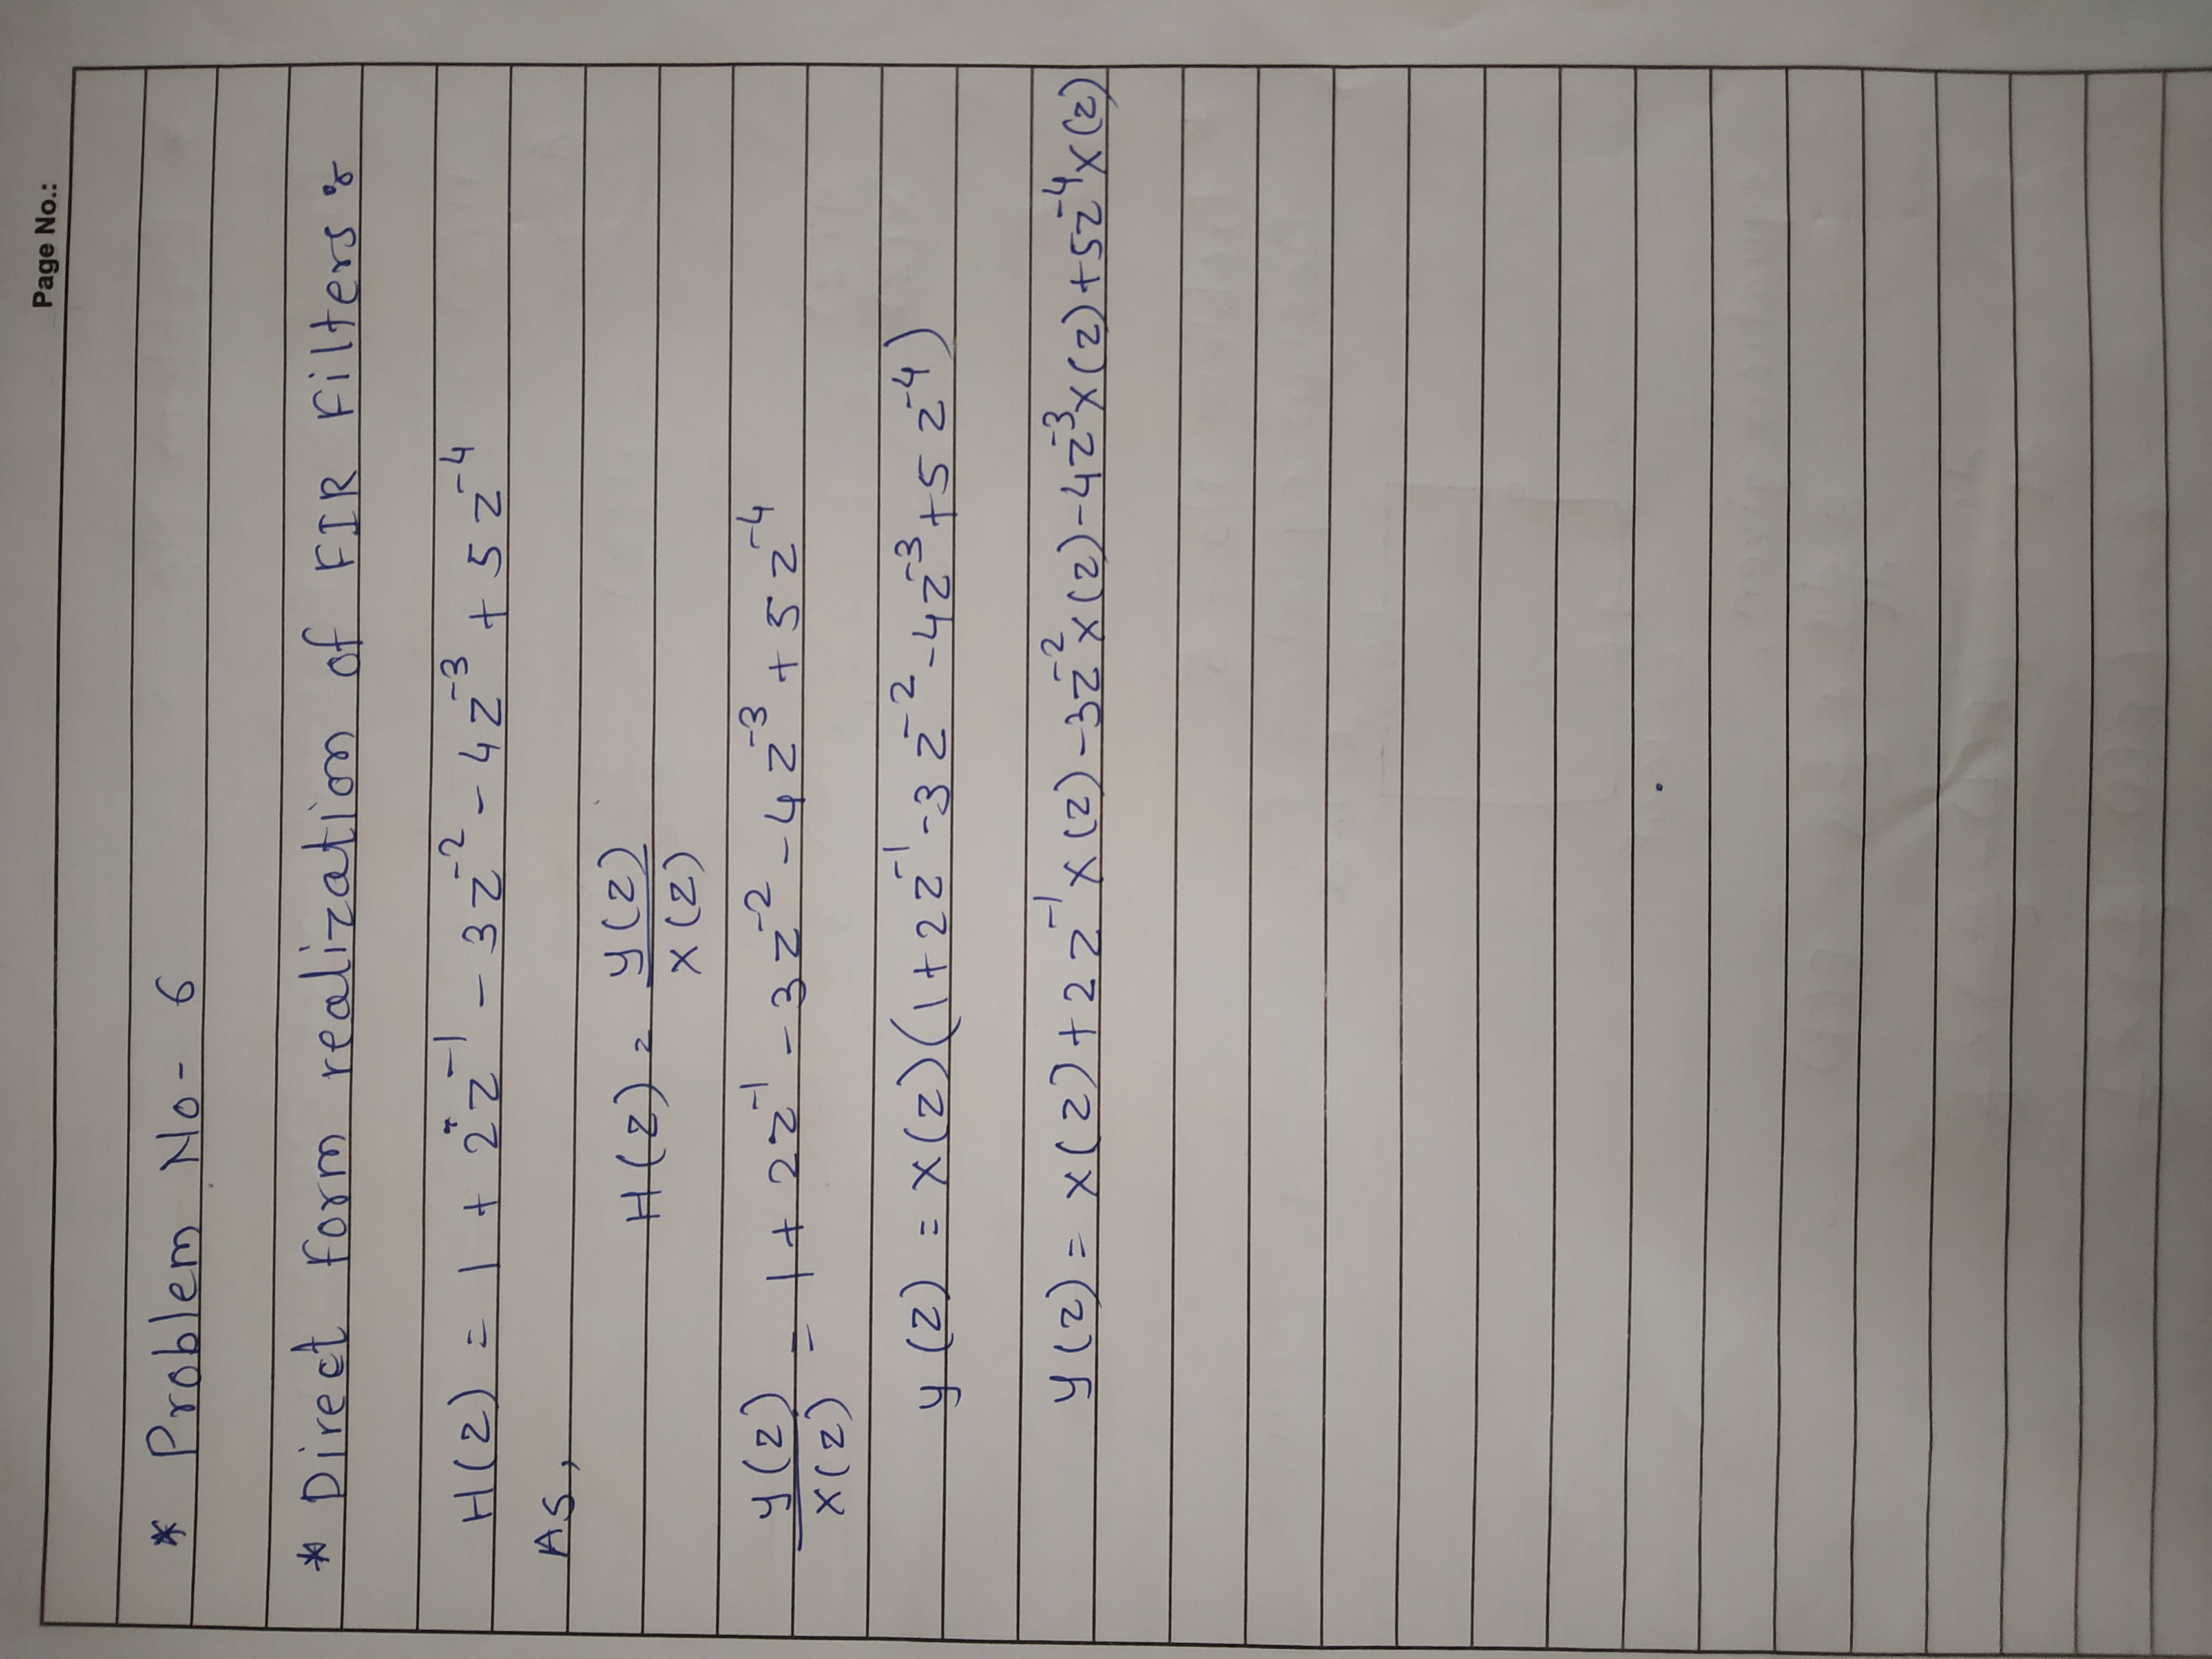 Page No.:
* Problem No- 6
* Direct Form realization of FIR Filters :
H(z) = 1 + 2z⁻¹ - 3z⁻² - 4z⁻³ + 5z⁻⁴
As,
H(z) = y(z)/x(z)
y(z)/x(z) = 1 + 2z⁻¹ - 3z⁻² - 4z⁻³ + 5z⁻⁴
y(z) = x(z)(1+2z⁻¹-3z⁻²-4z⁻³+5z⁻⁴)
y(z) = x(z)+2z⁻¹x(z)-3z⁻²x(z)-4z⁻³x(z)+5z⁻⁴x(z)